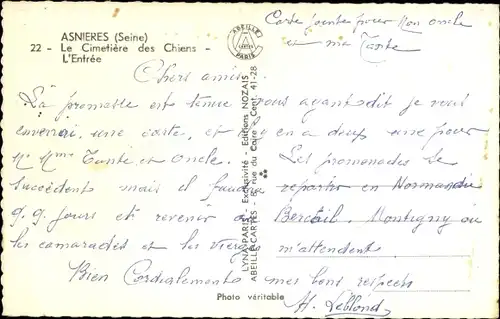 ASNIERES (Seine)
22 - Le Cimetière des Chiens -
L'Entrée
ABEILLE
PARIS
LYNA-PARIS Exclusivité - Editions NOZAIS
ABEILLE-CARTES - 8, rue du Caire - Cent. 41-28
Carte jointe pour Mon oncle
et ma Tante
Chers amis
La promesse est tenue vous ayant dit je vous
enverrai une carte, et il y en a deux une pour
Mr Mme Tante et oncle. Les promenades se
succèdent mais il faudra repartir en Normandie
q.q. jours et revenir à Montigny ou
les camarades et les m'attendent
Bien Cordialement mes bons respects
H. Leblond
Photo véritable